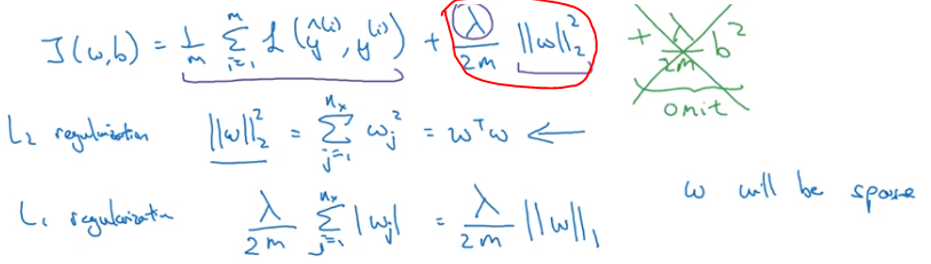 J(w,b) = 1/m Σ_{i=1}^{m} L(ŷ^{(i)}, y^{(i)}) + λ/2m ||w||_2^2 + λ/2m b^2
omit
L_2 regularization ||w||_2^2 = Σ_{j=1}^{n_x} w_j^2 = w^T w ←
L_1 regularization λ/2m Σ_{j=1}^{n_x} |w_j| = λ/2m ||w||_1 w will be sparse